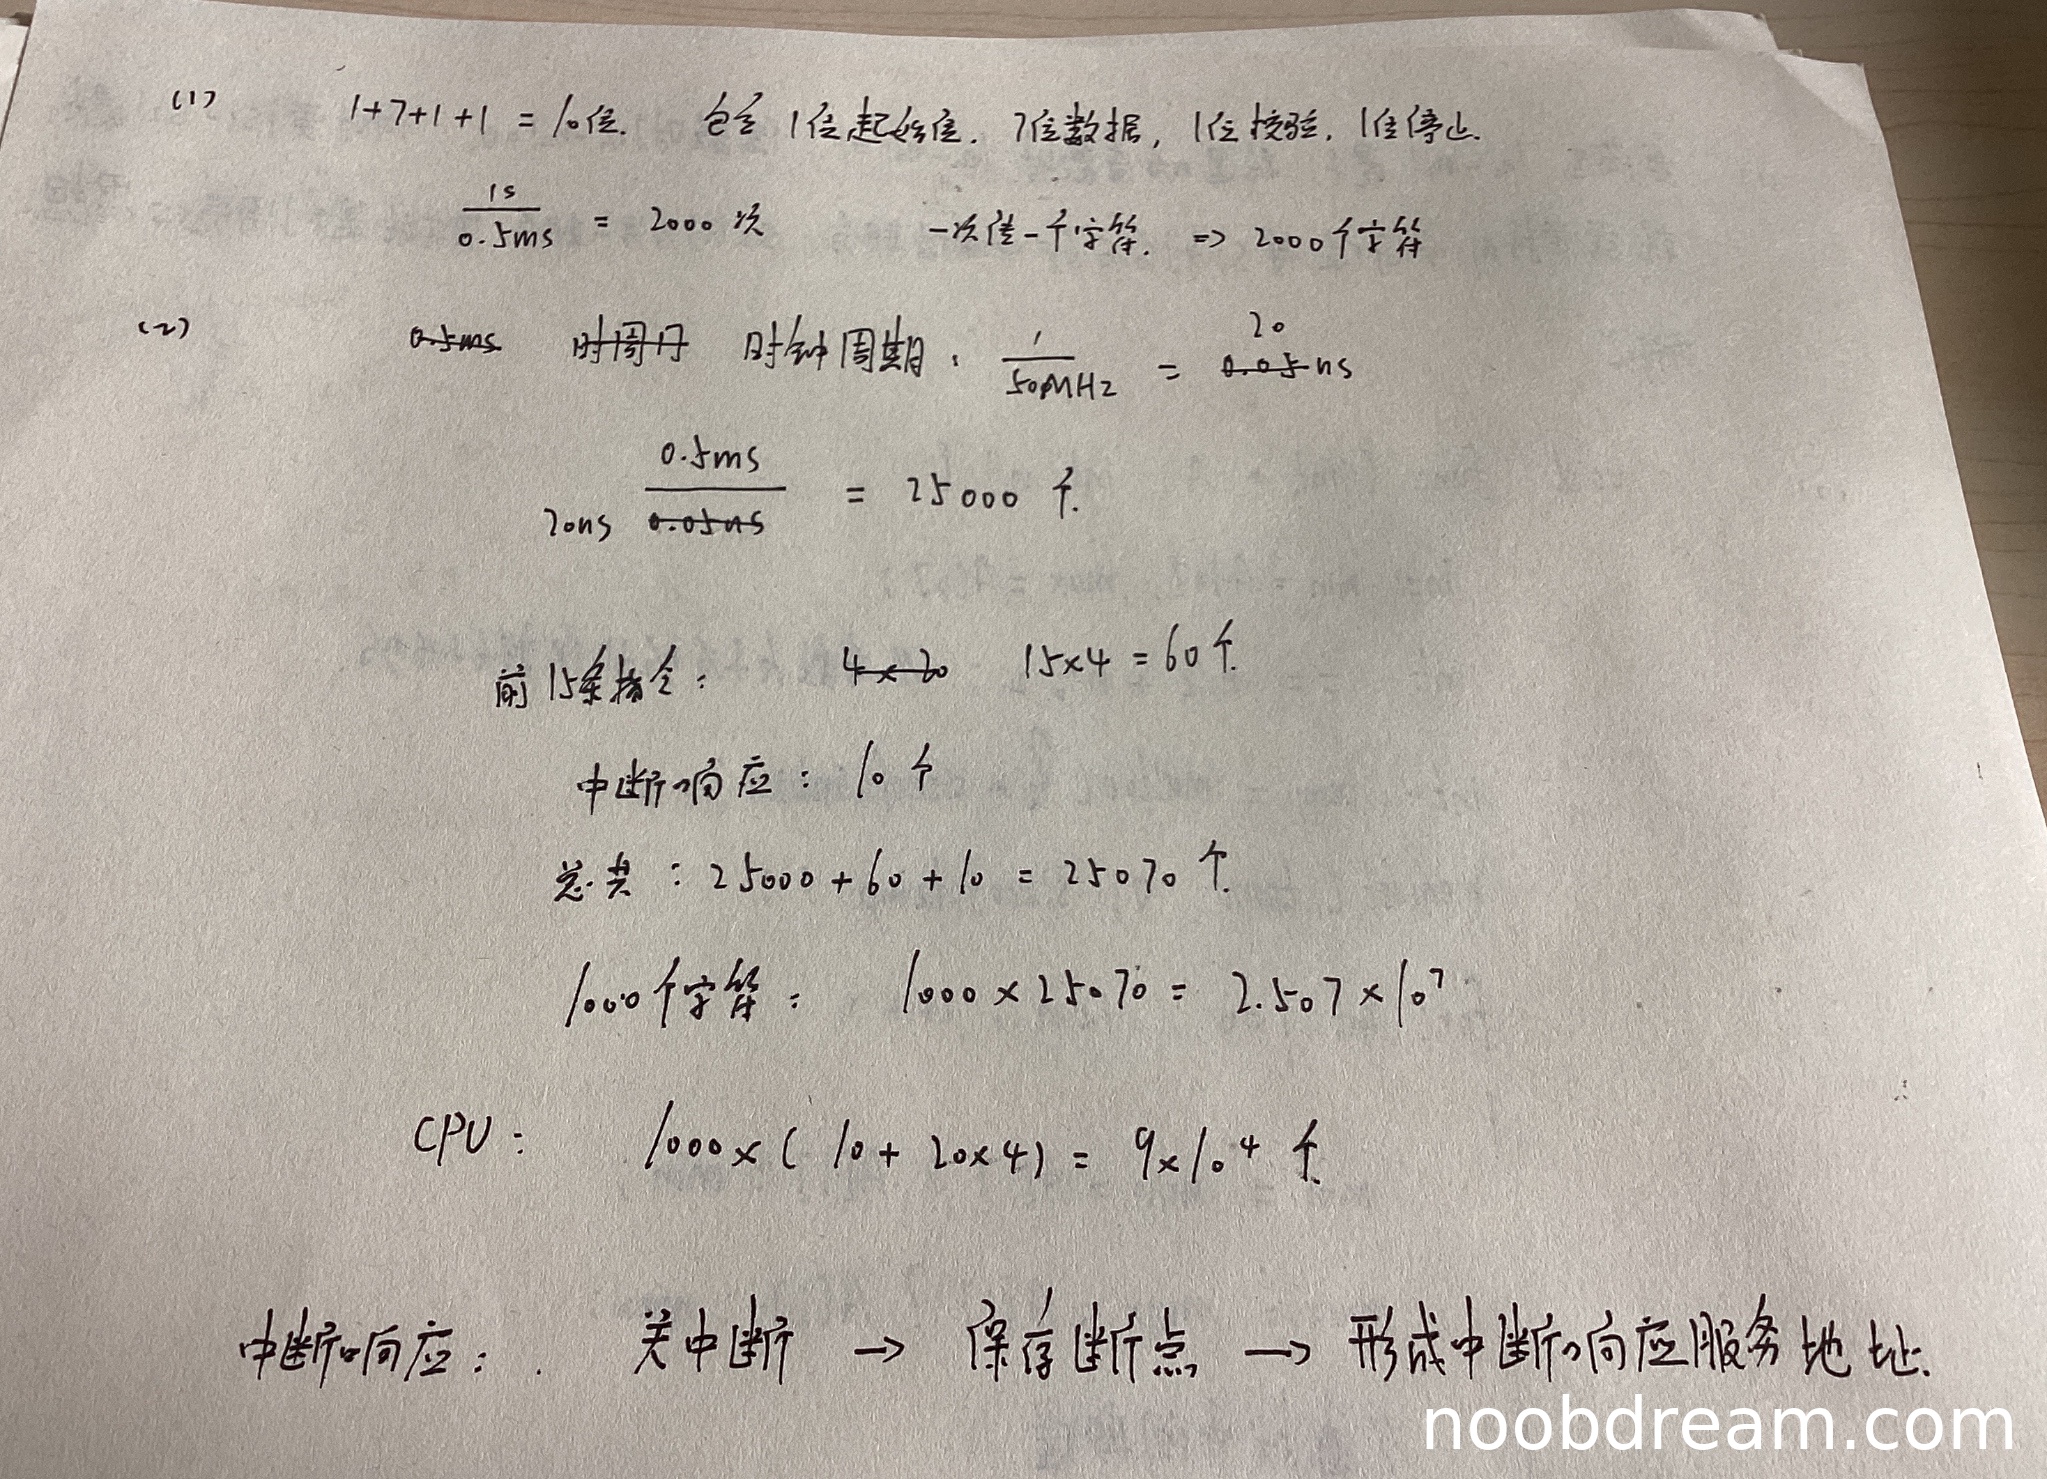 (1) 1+7+1+1 = 10位. 包含 1位起始位. 7位数据, 1位校验. 1位停止.
1s / 0.5ms = 2000 次 一次传一个字符. => 2000个字符
(2) 0.5ms 时周月 时钟周期: 1 / 50MHz = 20 0.05 ns
0.5ms / 20ns 0.05ns = 25000 个.
前15条指令: 4×20 15×4 = 60个.
中断响应: 10个
总共: 25000 + 60 + 10 = 25070 个.
1000个字符: 1000 × 25070 = 2.507 × 10⁷
CPU: 1000×( 10 + 20×4) = 9×10⁴ 个.
中断响应: . 关中断 → 保存断点 → 形成中断响应服务地址.
noobdream.com